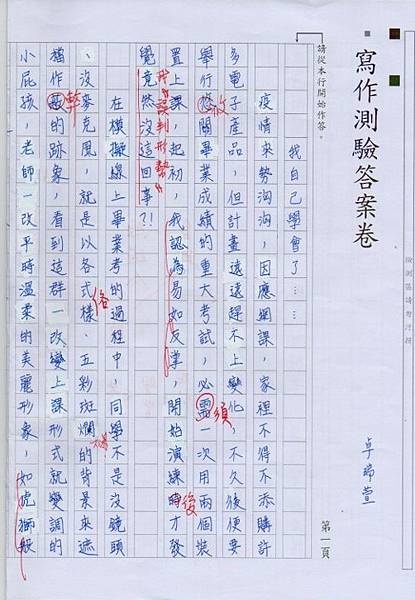 寫作測驗答案卷
卓瑞萱
第一頁
請從本行開始作答。
我自己學會了……
疫情來勢洶洶，因應網課，家裡不得不添購許
多電子產品，但計畫遠遠趕不上變化，不久後便要
舉行攸關畢業成績的重大考試，必需一次用兩個裝
攸
須
置上課，起初，我認為易如反掌，開始演練時才發
後
覺竟然沒這回事？！
我誤判形勢。
在模擬線上畢業考的過程中，同學不是沒鏡頭
、沒麥克風，就是以各式樣、五彩斑斕的背景來遮
各
檔作弊的跡象，看到這群一改變上課形式就變調的
弊
小屁孩，老師一改平時溫柔的美麗形象，如虎獅般